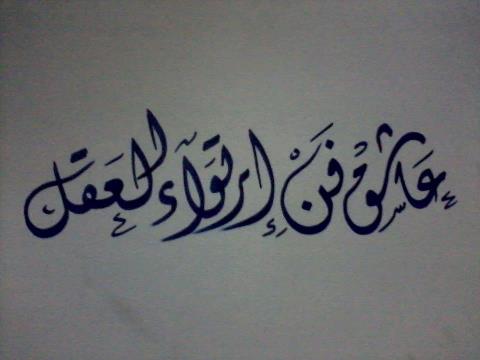 عاشق فن إرتواء العقل